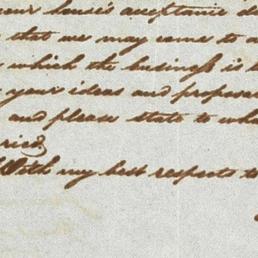 your house's acceptance
that we may come to
which the business is
your ideas and
and please state to
With my best respects to